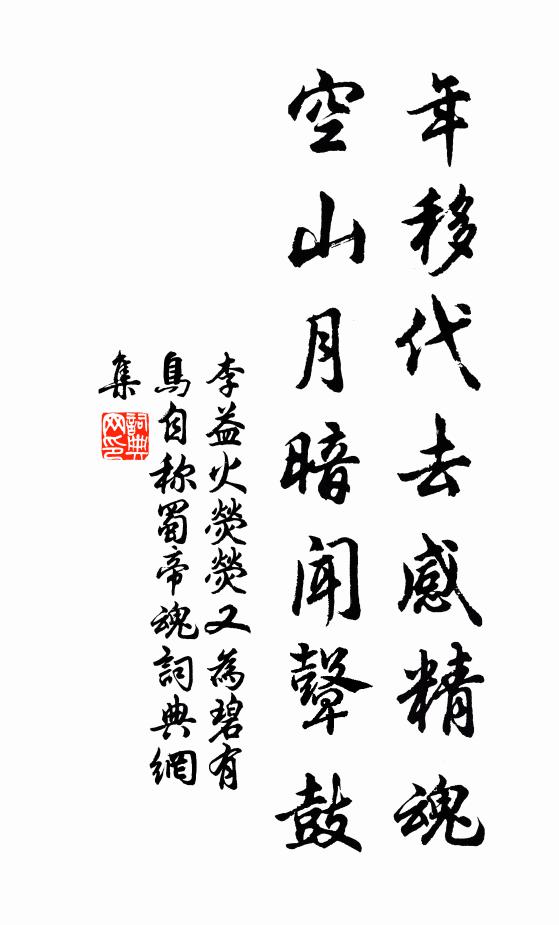 年移代去感精魂
空山月暗聞鼙鼓
李益火熒熒又為碧有
鳥自称蜀帝魂詞典網
集
詞典
网印